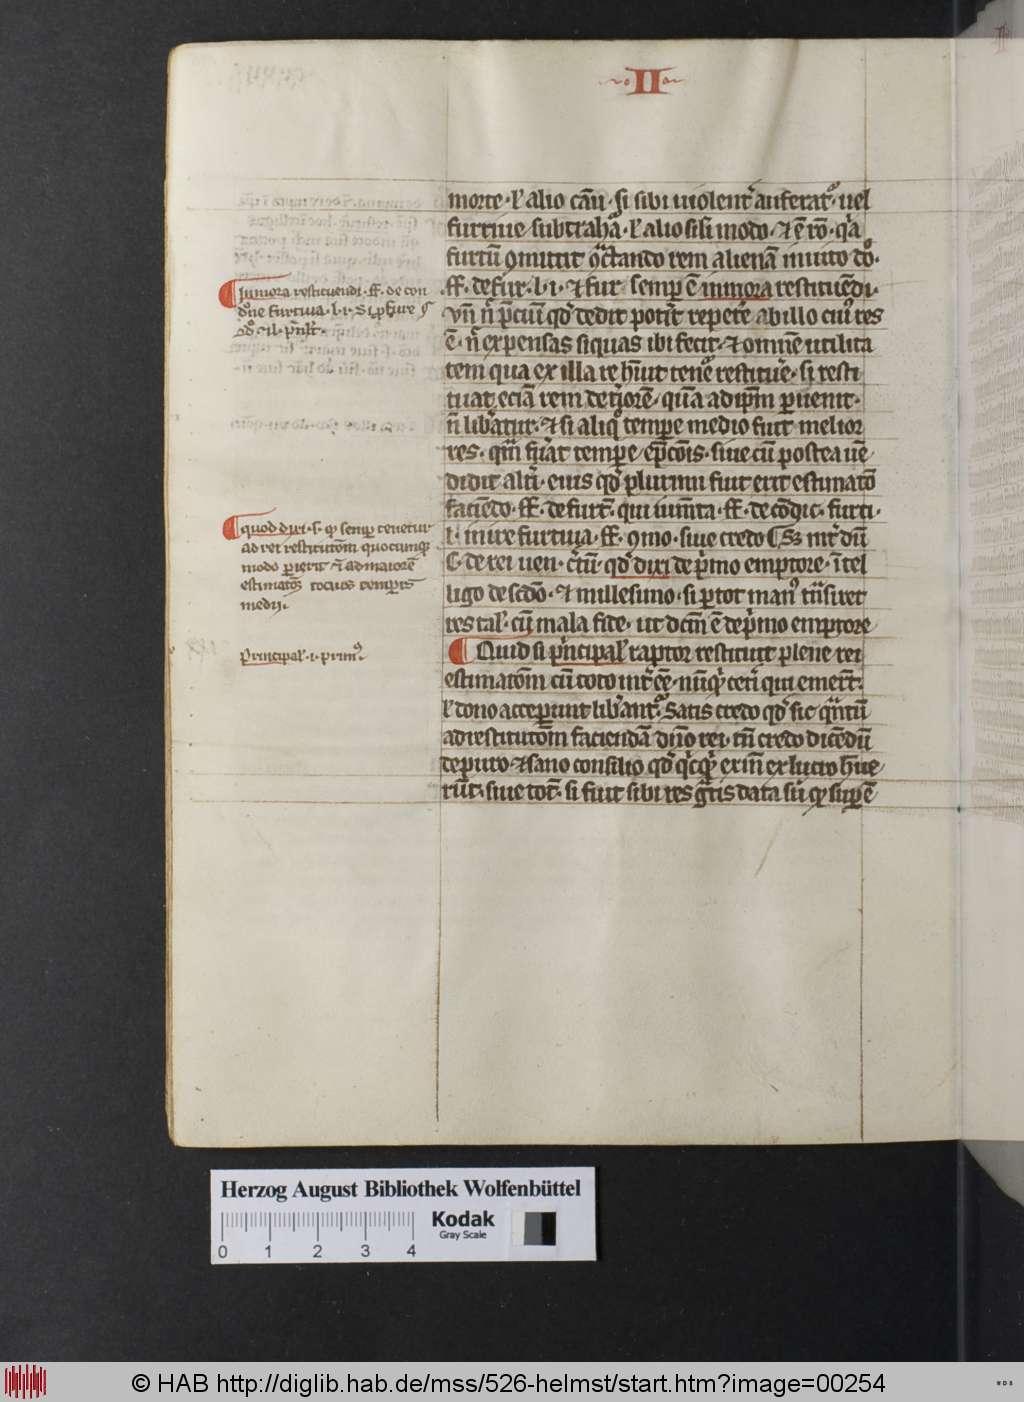 II
morte · ł alio casu · si sibi uiolent᷑ auferat᷑ · uel
furtiue subtrahat᷑ · ł alio sił'i modo · ⁊ ē rō · qͥa
furtū ꝯmittit ꝯtractando rem alienā inuito dn̄o ·
ff · de fur · l · i · ⁊ fur semꝑ ē in mora restituēdi ·
Vn̄ n̄ p̄cium qd̓ dedit potit᷑ repetē ab illo cui᷒ res
ē · n̄ expensas siquas ibi fecit · ⁊ omnē utilita
tem qua ex illa re h̓uit tenet᷑ restituē · si resti
tuat eciā rem det͛iorē quā ad ip̄m ꝑuenit ·
n̄ libat᷑ · ⁊ si aliqͦ tempe medio fuit melior
res ·
didit alt͛i · eius qd̓ plurimi fuit erit estimatō
faciēdo · ff · de furt̄ · qui
iure furtiua · ff · quo · siue credo
C · de rei uen · qd̓ dixi de pͥmo emptore · ītel
ligo de sc̄do · ⁊ millesimo · si ꝑ tot man᷒ tn̄siret
res tał · cū mala fide · ut dcm̄ ē de pͥmo emptore
¶ Quid si pͥncipał raptor restituit plene rei
estimatōm cū toto int͛ee · nūqͥd cet͛i qui emerūt ·
ł dono acceperunt libant᷑ · Satis credo qd̓ sic qn̄tū
ad restitutōm faciendā dn̄o rei · tn̄ credo dicēdū
de puro ⁊ sano consilio qd̓ qͥcqͥd exinde ex lucro h̓ue
rūt · siue tot · si fuit sibi res gͣtis data sū
¶ In mora restituendi · ff · de con
dōne furtiua · l ·
¶ quod dixi · s · ꝙ semꝑ tenetur
ad rei restitutōm quocunque
modo perierit ⁊ ad maiorē
estimatōem tocius temporis
medij ·
Principał · i · prim᷒
Herzog August Bibliothek Wolfenbüttel
Kodak
Gray Scale
0 1 2 3 4
© HAB http://diglib.hab.de/mss/526-helmst/start.htm?image=00254